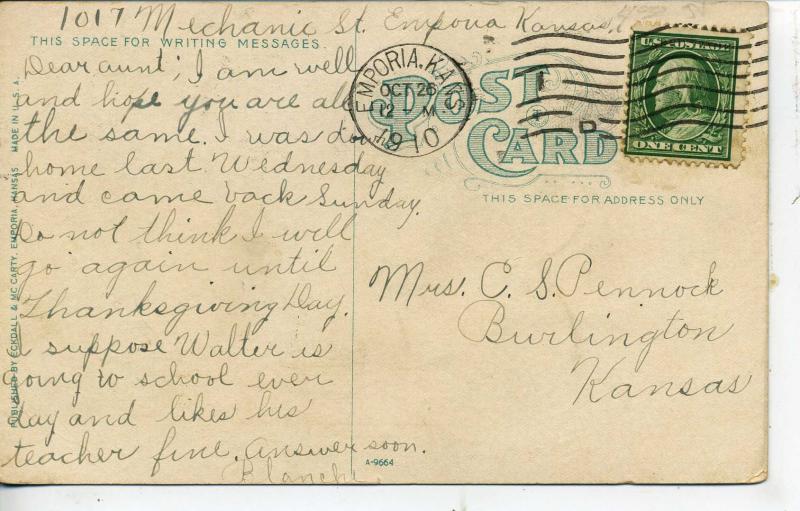 1017 Mechanic St. Emporia Kansas.
THIS SPACE FOR WRITING MESSAGES
Dear aunt; I am well
and hope you are all
the same. I was down
home last Wednesday
and came back Sunday.
Do not think I will
go again until
Thanksgiving Day.
I suppose Walter is
going to school ever
day and likes his
teacher fine. Answer soon.
Blanche.
PUBLISHED BY ECKDALL & MC CARTY, EMPORIA, KANSAS MADE IN U.S.A.
EMPORIA, KANS.
OCT 26
12 M
1910
POST
CARD
U.S. POSTAGE
ONE CENT
THIS SPACE FOR ADDRESS ONLY
Mrs. C. S. Pennock
Burlington
Kansas
A-9664